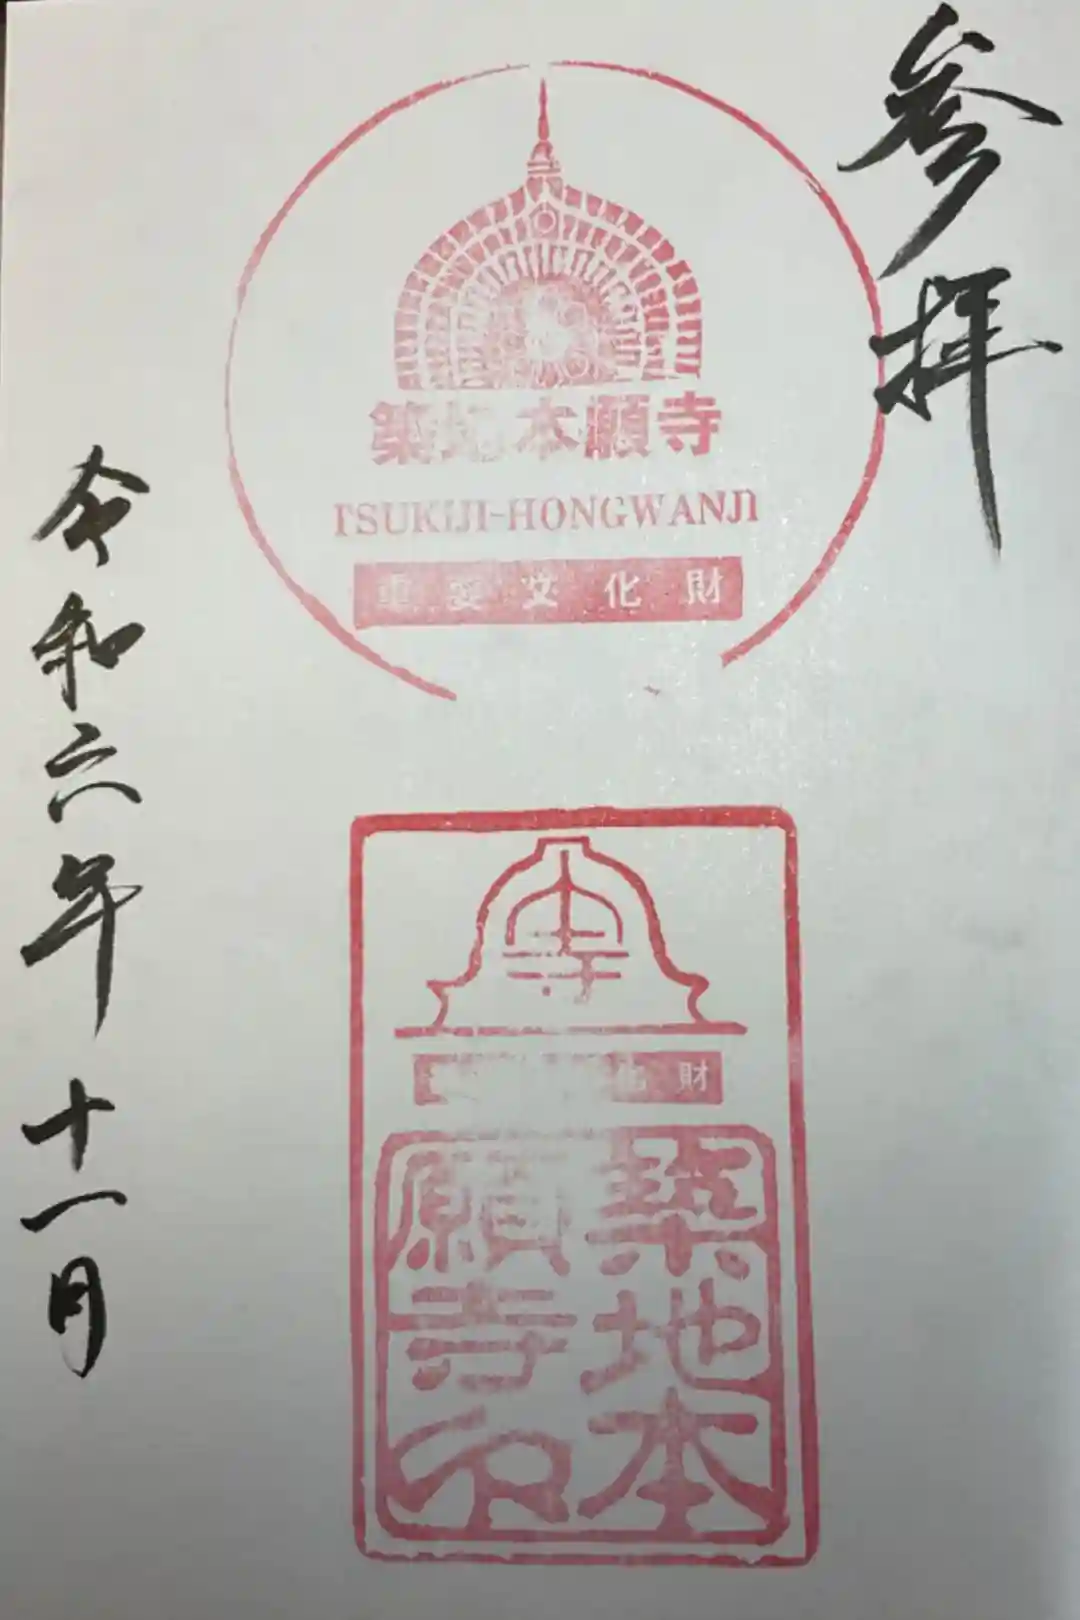 参拝
築地本願寺
TSUKIJI-HONGWANJI
重要文化財
寺
化財
築地本
願寺
令和六年十一月